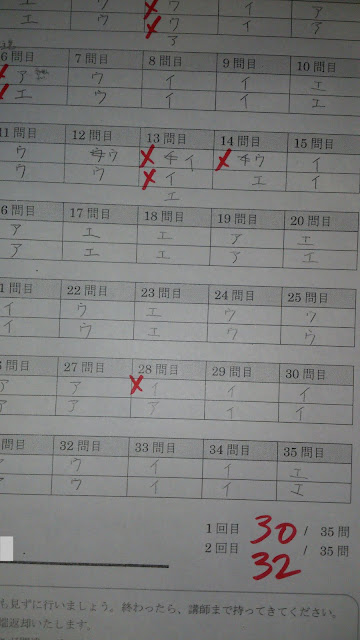 ウ イ ア
ウ イ ア
ア
6問目 7問目 8問目 9問目 10問目
ア ウ イ イ エ
エ ウ イ イ エ
11問目 12問目 13問目 14問目 15問目
ウ ウ イ ウ イ
ウ ウ イ エ イ
エ
6問目 17問目 18問目 19問目 20問目
ア エ エ ア エ
ア エ エ ア エ
1問目 22問目 23問目 24問目 25問目
イ ウ エ ウ ウ
イ ウ エ ウ ウ
問目 27問目 28問目 29問目 30問目
ア ア イ イ イ
ア ア ア イ イ
問目 32問目 33問目 34問目 35問目
ア ウ イ イ エ
ア ウ イ イ エ
1回目 30 / 35問
2回目 32 / 35問
も見ずに行いましょう。終わったら、講師まで持ってきてください。
返却いたします。